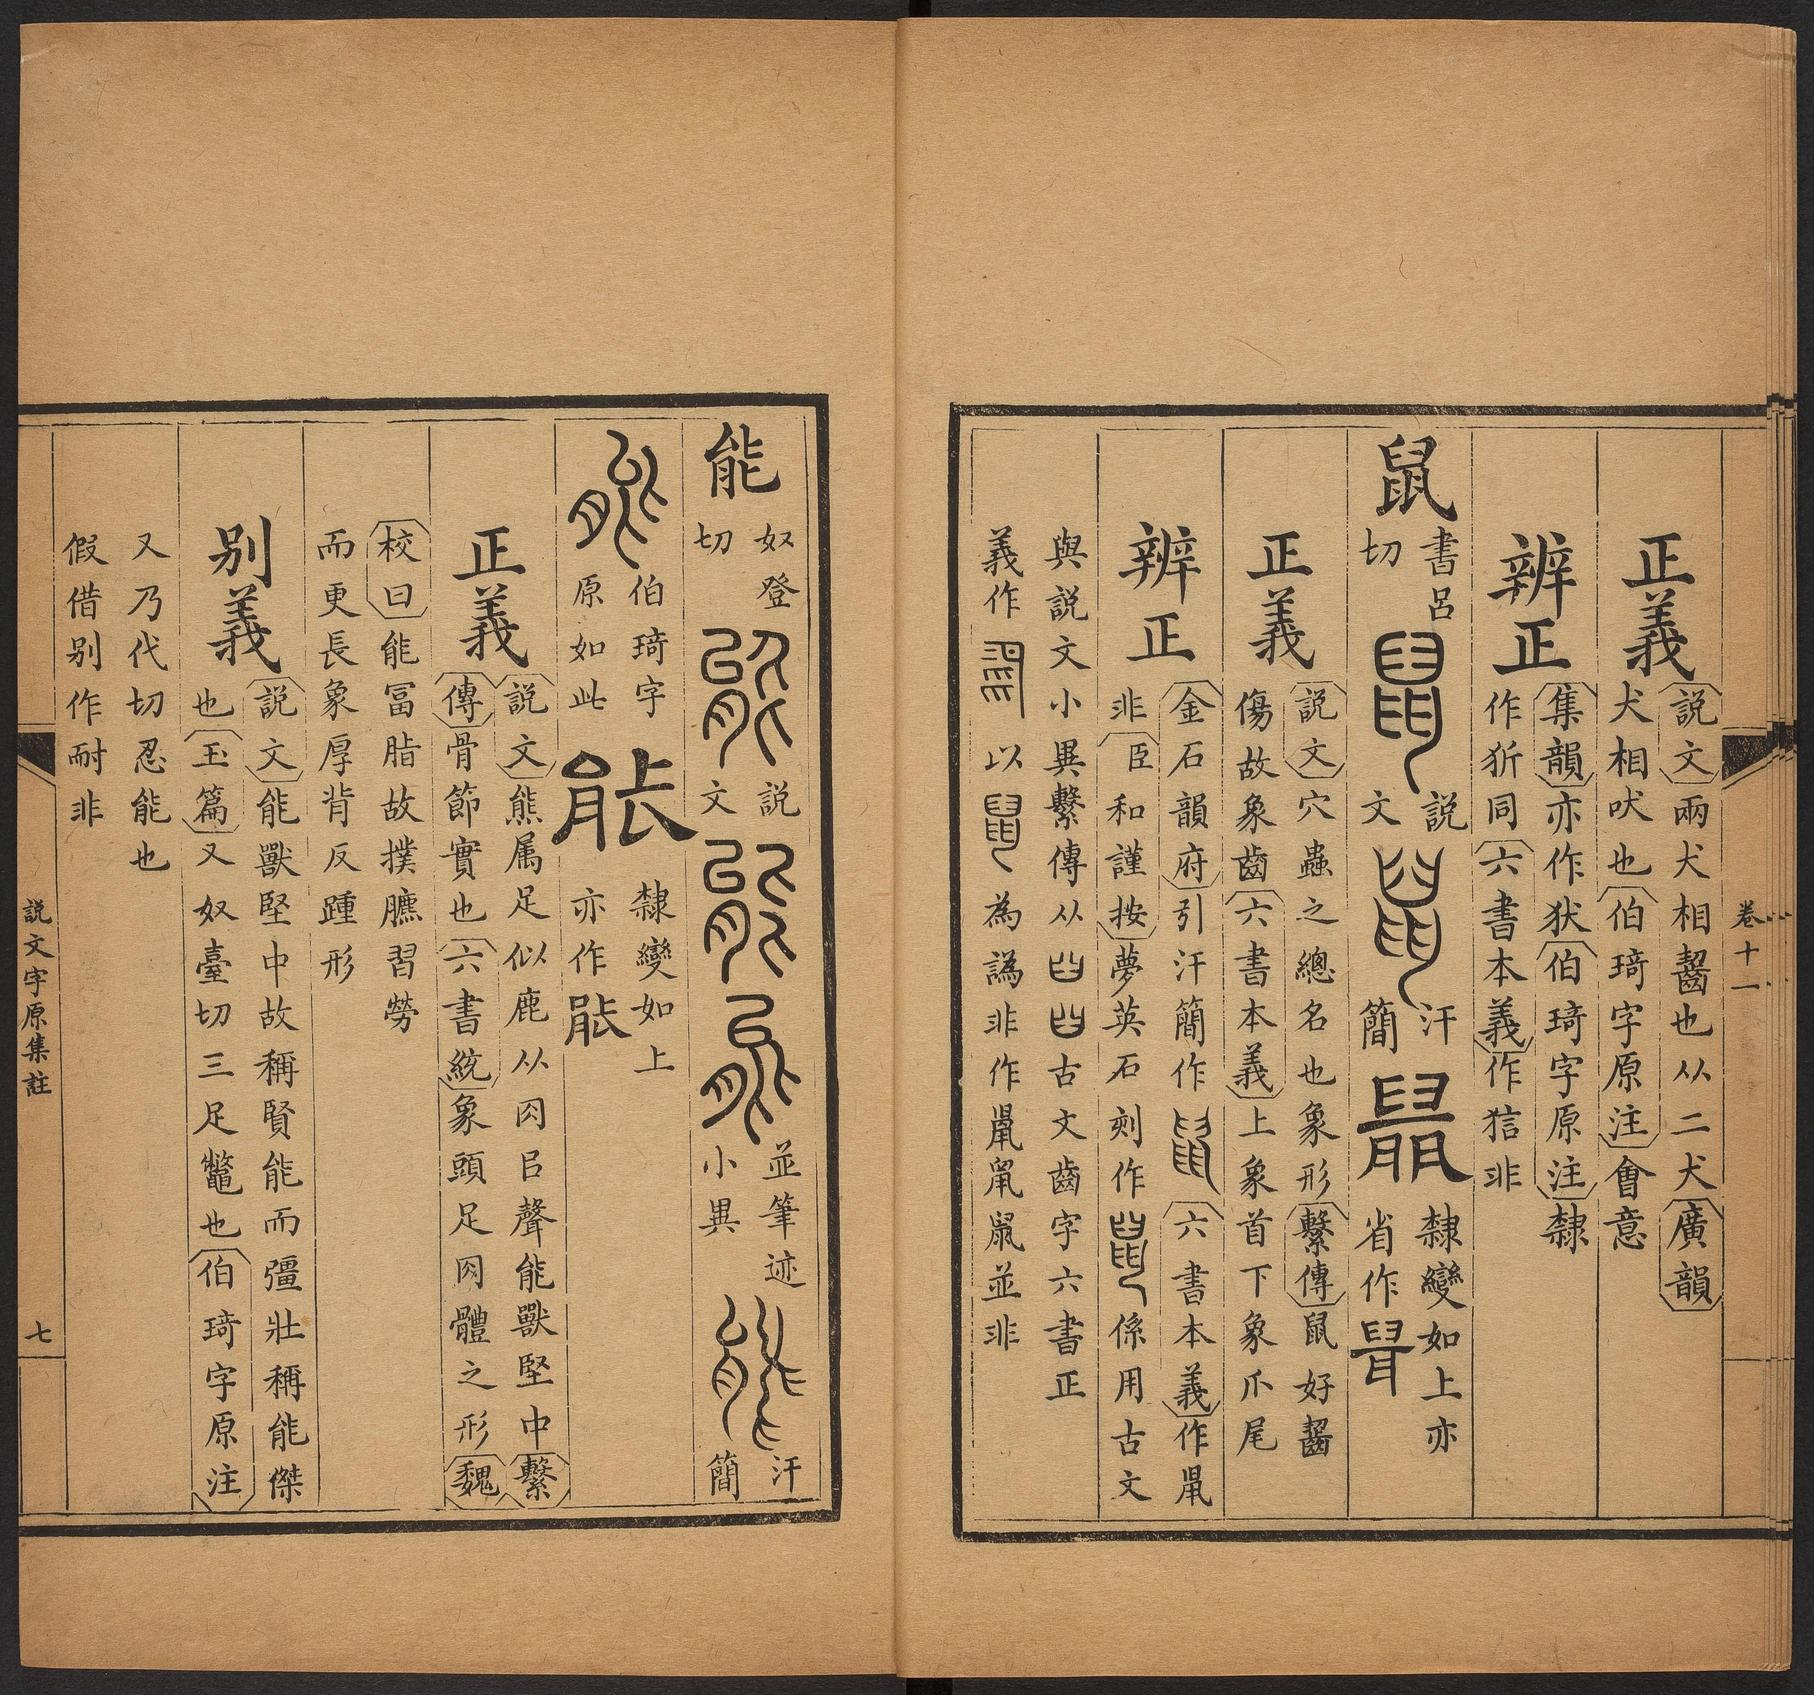 卷十一
正義
說文兩犬相齧也从二犬廣韻
犬相吠也伯琦字原注會意
辨正
集韻亦作犾伯琦字原注隸
作㹞同六書本義作狺非
鼠
書呂
切
說
文
汗
簡
隸變如上亦
省作
正義
說文穴蟲之總名也象形繫傳鼠好齧
傷故象齒六書本義上象首下象爪尾
辨正
金石韻府引汗簡作 六書本義作
非臣和謹按夢英石刻作 係用古文
與說文小異繫傳从 古文齒字六書正
義作 以 為譌非作 並非
能
奴登
切
說
文
並筆迹
小異
汗
簡
伯琦字
原如此
隸變如上
亦作
正義
說文熊属足似鹿从肉㠯聲能獸堅中繫
傳骨節實也六書統象頭足肉體之形魏
校曰能冨脂故撲臕習勞
而更長象厚背反踵形
别義
說文能獸堅中故稱賢能而彊壯稱能傑
也玉篇又奴臺切三足鼈也伯琦字原注
又乃代切忍能也
假借别作耐非
說文字原集註
七